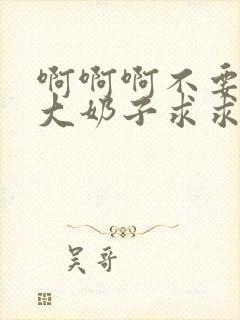 啊啊啊不要
大奶子求求
吴哥